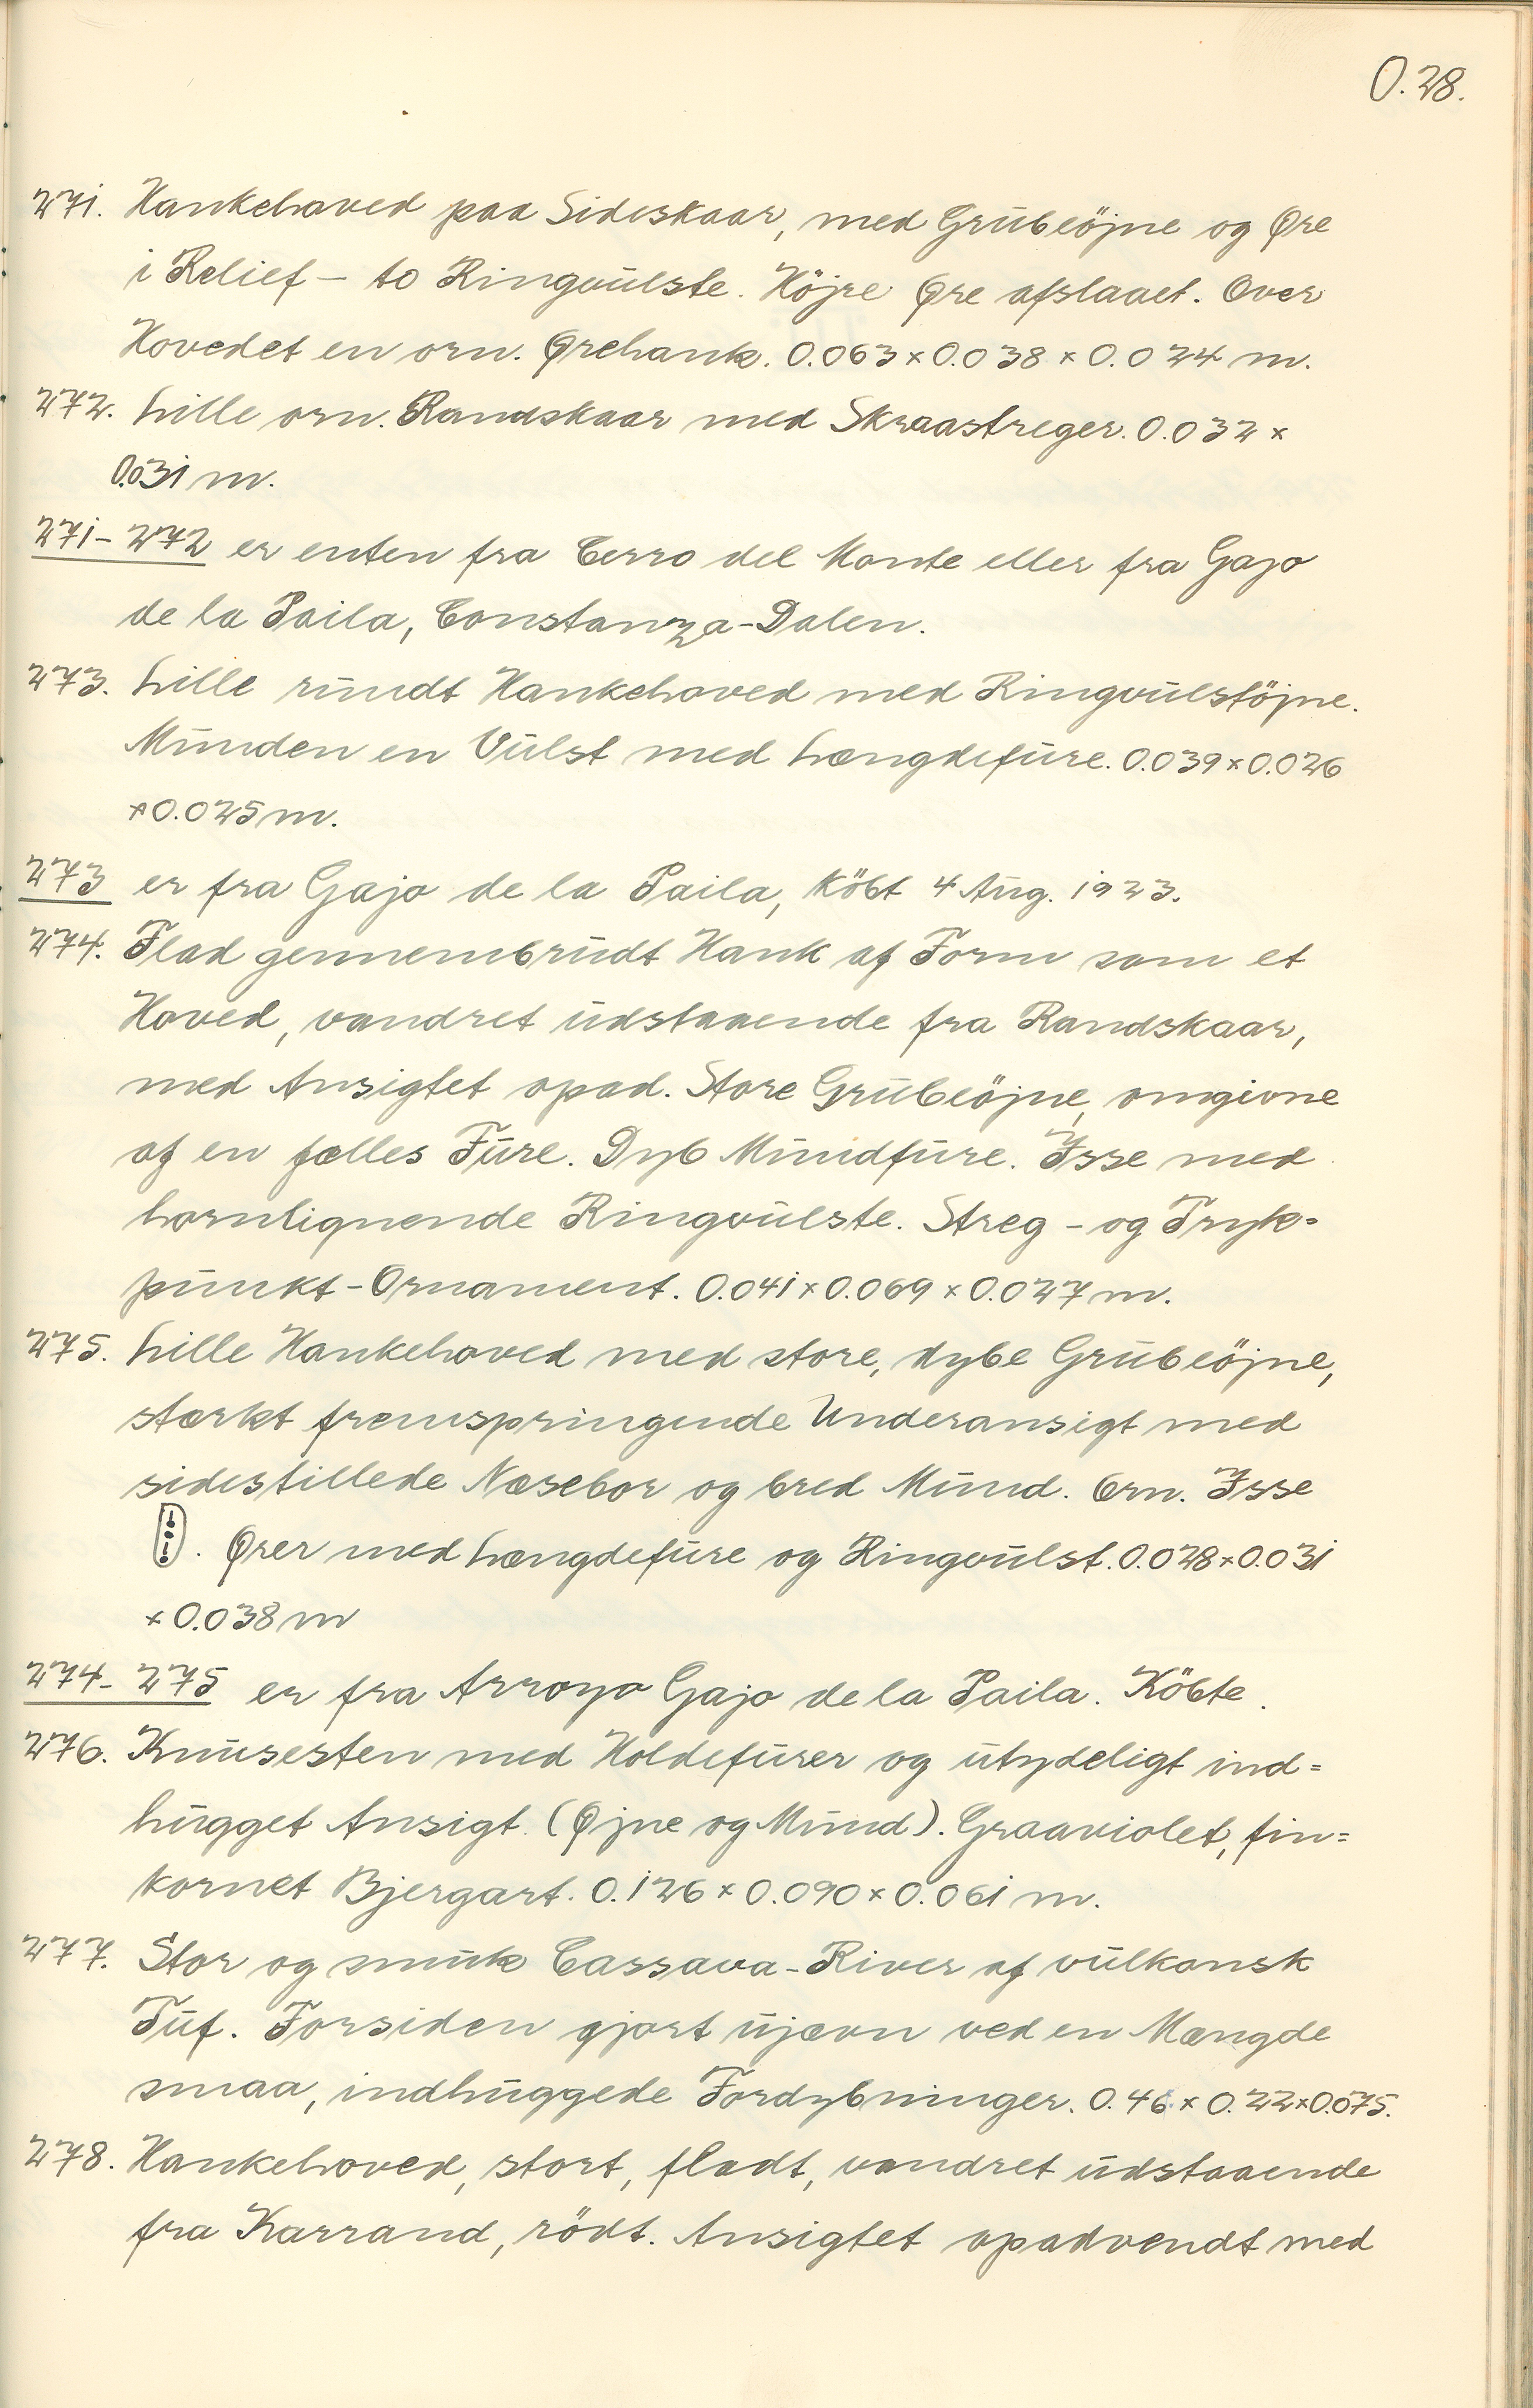 O.28.
271. Hankehoved paa Sideskaar, med Grubeöjne og Øre
i Relief - to Ringvulste. Höjre Øre afslaaet. Over
Hovedet en orn. Ørehank. 0.063 × 0.038 × 0.024 m.
272. Lille orn. Randskaar med Skraastreger. 0.032 ×
0.031 m.
271 - 272 er enten fra Cerro del Monte eller fra Gajo
de la Paila, Constanza-Dalen.
273. Lille rundt Hankehoved med Ringvulstöjne.
Munden en Vulst med Længdefure. 0.039 × 0.026
× 0.025 m.
273 er fra Gajo de la Paila, köbt 4 Aug. 1923.
274. Flad gennembrudt Hank af Form som et
Hoved, vandret udstaaende fra Randskaar,
med Ansigtet opad. Store Grubeöjne, omgivne
af en fælles Fure. Dyb Mundfure. Isse med
hornlignende Ringvulste. Streg- og Tryk=
punkt-Ornament. 0.041 × 0.069 × 0.027 m.
275. Lille Hankehoved med store, dybe Grubeöjne,
stærkt fremspringende Underansigt med
sidestillede Næsebor og bred Mund. Orn. Isse
. Ører med Længdefure og Ringvulst. 0.028 × 0.031
× 0.038 m
274 - 275 er fra Arroyo Gajo de la Paila. Köbte.
276. Knusesten med Holdefurer og utydeligt ind=
hugget Ansigt (Øjne og Mund). Graaviolet, fin=
kornet Bjergart. 0.126 × 0.090 × 0.061 m.
277. Stor og smuk Cassava-River af vulkansk
Tuf. Forsiden gjort ujævn ved en Mængde
smaa, indhuggede Fordybninger. 0.46 × 0.22 × 0.075.
278. Hankehoved, stort, fladt, vandret udstaaende
fra Karrand, rödt. Ansigtet opadvendt med